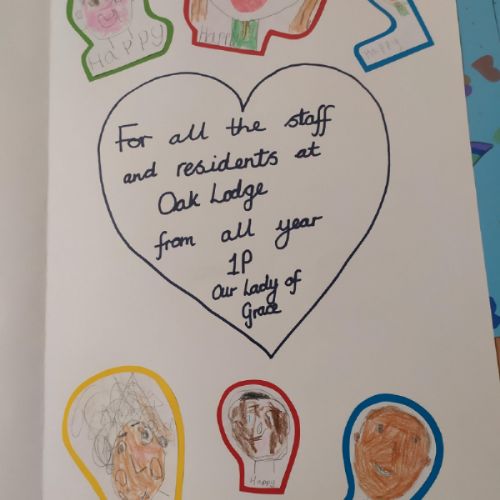 Happy
Happy
Happy
For all the staff
and residents at
Oak Lodge
from all year
1P
Our Lady of
Grace
Happy